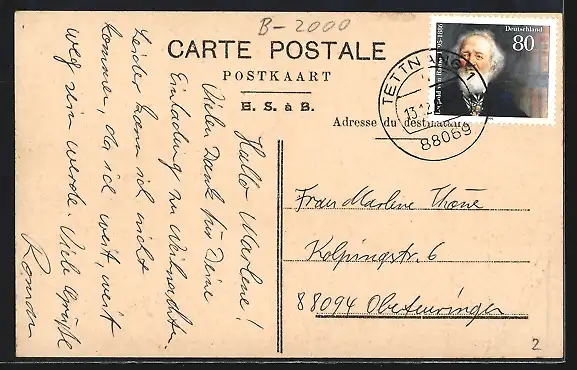 B-2000
CARTE POSTALE
POSTKAART
E. S. à B.
Adresse du destinataire
Deutschland
80
Leopold von Ranke 1795-1886
TETTNANG 1
13.12
88069
Hallo Marlene!
Vielen Dank für Deine
Einladung zu Weihnachten.
Leider kann ich nicht
kommen, da ich weit, weit
weg sein werde. Viele Grüße
Roman
Frau Marlene Thöne
Kolpingstr. 6
88094 Oberteuringen
2